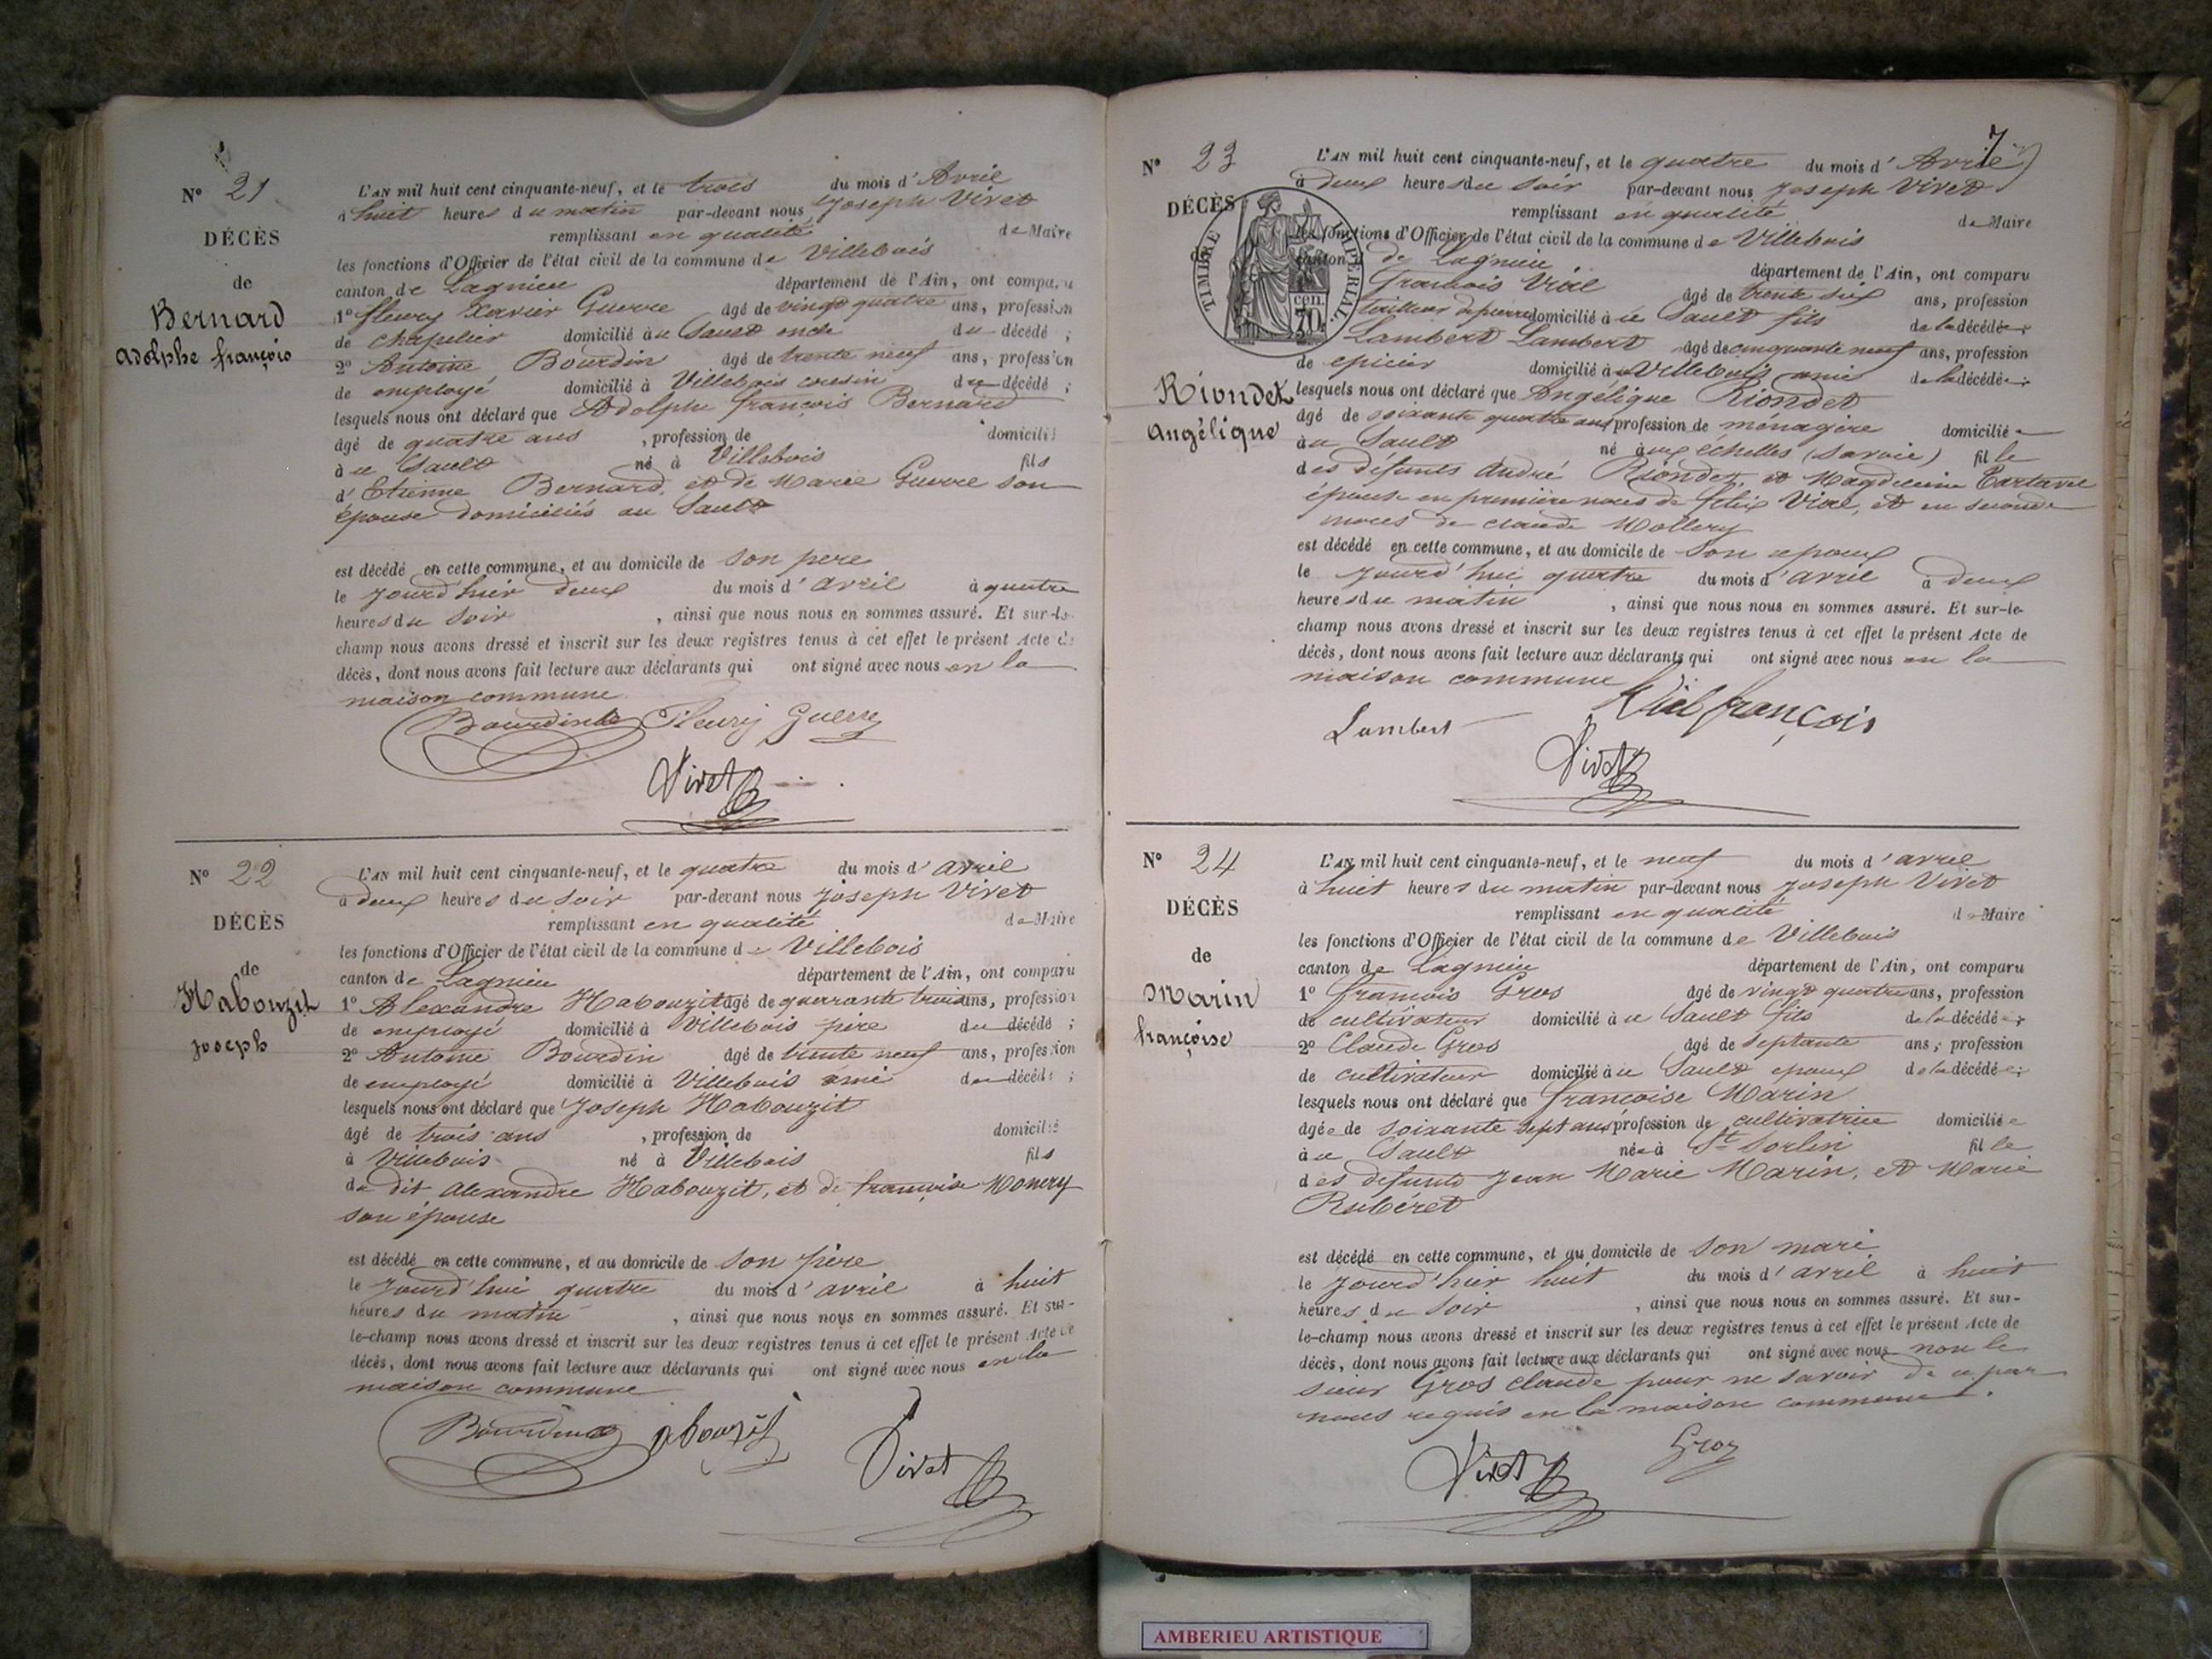 N° 21
DÉCÈS
de
Bernard
Adolphe françois
L'AN mil huit cent cinquante-neuf, et le trois du mois d'Avril
à huit heures du matin par-devant nous Joseph Vivet
remplissant en qualité de Maire
les fonctions d'Officier de l'état civil de la commune de Villebois
canton de Lagnieu département de l'Ain, ont comparu
1° fleury Xavier Guerre âgé de vingt quatre ans, profession
de chapelier domicilié au Sault oncle du décédé ;
2° Antoine Bourdin âgé de trente neuf ans, profession
de employé domicilié à Villebois cousin du décédé ;
lesquels nous ont déclaré que Adolphe françois Bernard
âgé de quatre ans , profession de domicilié
au Sault né à Villebois fils
d'Etienne Bernard, et de Marie Guerre son
épouse domiciliés au Sault
est décédé en cette commune, et au domicile de son pere
le jourd'hier deux du mois d'avril à quatre
heures du soir , ainsi que nous nous en sommes assuré. Et sur-le-
champ nous avons dressé et inscrit sur les deux registres tenus à cet effet le présent Acte de
décès, dont nous avons fait lecture aux déclarants qui ont signé avec nous en la
maison commune
Bourdin Fleury Guerre
Vivet
N° 22
DÉCÈS
de
Habouzit
joseph
L'AN mil huit cent cinquante-neuf, et le quatre du mois d'avril
à deux heures du soir par-devant nous Joseph Vivet
remplissant en qualité de Maire
les fonctions d'Officier de l'état civil de la commune de Villebois
canton de Lagnieu département de l'Ain, ont comparu
1° Alexandre Habouzit âgé de quarante trois ans, profession
de employé domicilié à Villebois père du décédé ;
2° Antoine Bourdin âgé de trente neuf ans, profession
de employé domicilié à Villebois ami du décédé ;
lesquels nous ont déclaré que Joseph Habouzit
âgé de trois ans , profession de domicilié
à Villebois né à Villebois fils
du dit Alexandre Habouzit, et de françoise Monery
son épouse
est décédé en cette commune, et au domicile de son père
le jourd'hui quatre du mois d'avril à huit
heures du matin , ainsi que nous nous en sommes assuré. Et sur-
le-champ nous avons dressé et inscrit sur les deux registres tenus à cet effet le présent Acte de
décès, dont nous avons fait lecture aux déclarants qui ont signé avec nous en la
maison commune
Bourdin abouzit Vivet
7
N° 23
DÉCÈS
TIMBRE IMPERIAL
cen.
70
Riondet
Angélique
L'AN mil huit cent cinquante-neuf, et le quatre du mois d'Avril
à deux heures du soir par-devant nous Joseph Vivet
remplissant en qualité de Maire
les fonctions d'Officier de l'état civil de la commune de Villebois
canton de Lagnieu département de l'Ain, ont comparu
françois Vial âgé de trente six ans, profession
tailleur de pierre domicilié au Sault fils de la décédée ;
Lambert Lambert âgé de cinquante neuf ans, profession
de epicier domicilié à Villebois ami de la décédée ;
lesquels nous ont déclaré que Angélique Riondet
âgé de soixante quatre ans profession de ménagère domiciliée
au Sault né aux échelles (Savoie) fille
des défunts André Riondet, et Magdeleine Tartavel
épouse en première noces de felix Vial, et en seconde
noces de claude Mollery
est décédé en cette commune, et au domicile de son epoux
le jourd'hui quatre du mois d'avril à deux
heures du matin , ainsi que nous nous en sommes assuré. Et sur-le-
champ nous avons dressé et inscrit sur les deux registres tenus à cet effet le présent Acte de
décès, dont nous avons fait lecture aux déclarants qui ont signé avec nous en la
maison commune
Lambert Vial françois
Vivet
N° 24
DÉCÈS
de
Marin
françoise
L'AN mil huit cent cinquante-neuf, et le neuf du mois d'avril
à huit heures du matin par-devant nous Joseph Vivet
remplissant en qualité de Maire
les fonctions d'Officier de l'état civil de la commune de Villebois
canton de Lagnieu département de l'Ain, ont comparu
1° françois Gros âgé de vingt quatre ans, profession
de cultivateur domicilié au Sault fils de la décédée ;
2° Claude Gros âgé de septante ans, profession
de cultivateur domicilié au Sault epoux de la décédée ;
lesquels nous ont déclaré que françoise Marin
âgée de soixante sept ans profession de cultivatrice domiciliée
au Sault née à St Sorlin fille
des defunts Jean Marie Marin, et Marie
Rubéret
est décédé en cette commune, et au domicile de son mari
le jourd'hier huit du mois d'avril à huit
heures du soir , ainsi que nous nous en sommes assuré. Et sur-
le-champ nous avons dressé et inscrit sur les deux registres tenus à cet effet le présent Acte de
décès, dont nous avons fait lecture aux déclarants qui ont signé avec nous non le
sieur Gros claude pour ne savoir de ce par
nous requis en la maison commune.
Vivet Gros
AMBERIEU ARTISTIQUE